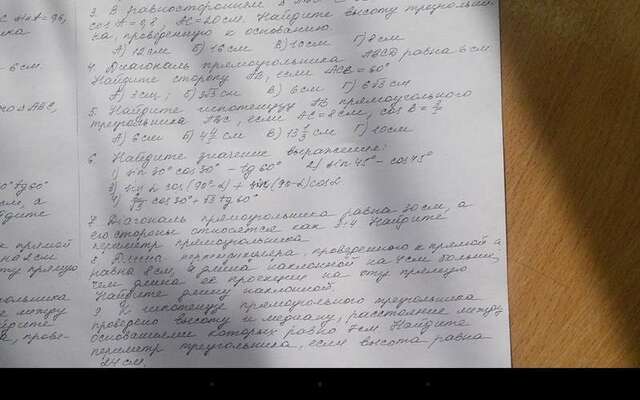 С. sin A = 0,6,
3. В равностороннем Δ
cos A = 0,8, AC = 20 см. Найдите высоту треугольни-
ка, проведенную к основанию.
А) 12 см Б) 16 см В) 10 см Г) 8 см
4. Диагональ прямоугольника ABCD равна 6 см
Найдите сторону AB, если ∠ACB = 60°
А) 3 см; Б) 3√3 см В) 6 см Г) 6√3 см
5. Найдите гипотенузу AB прямоугольного
треугольника ABC, если AC = 8 см, cos B =
А) 6 см Б) см В) 13 1/3 см Г) 10 см
6. Найдите значение выражения:
1) sin 30° cos 30° - tg 60° 2) sin 45° - cos 45°
3) sin α cos (90°-α) + sin (90-α) cos α
4) cos 30° + √3 tg 60°
7. Диагональ прямоугольника равна 30 см, а
его стороны относятся как 3:4 Найдите
периметр прямоугольника
8. Длина перпендикуляра, проведенного к прямой а
равна 8 см, а длина наклонной на 4 см больше,
чем длина её проекции на эту прямую
Найдите длину наклонной.
9. К гипотенузе прямоугольного треугольника
проведено высоту и медиану, расстояние между
основаниями которых равно 7 см. Найдите
периметр треугольника, если высота равна
24 см.